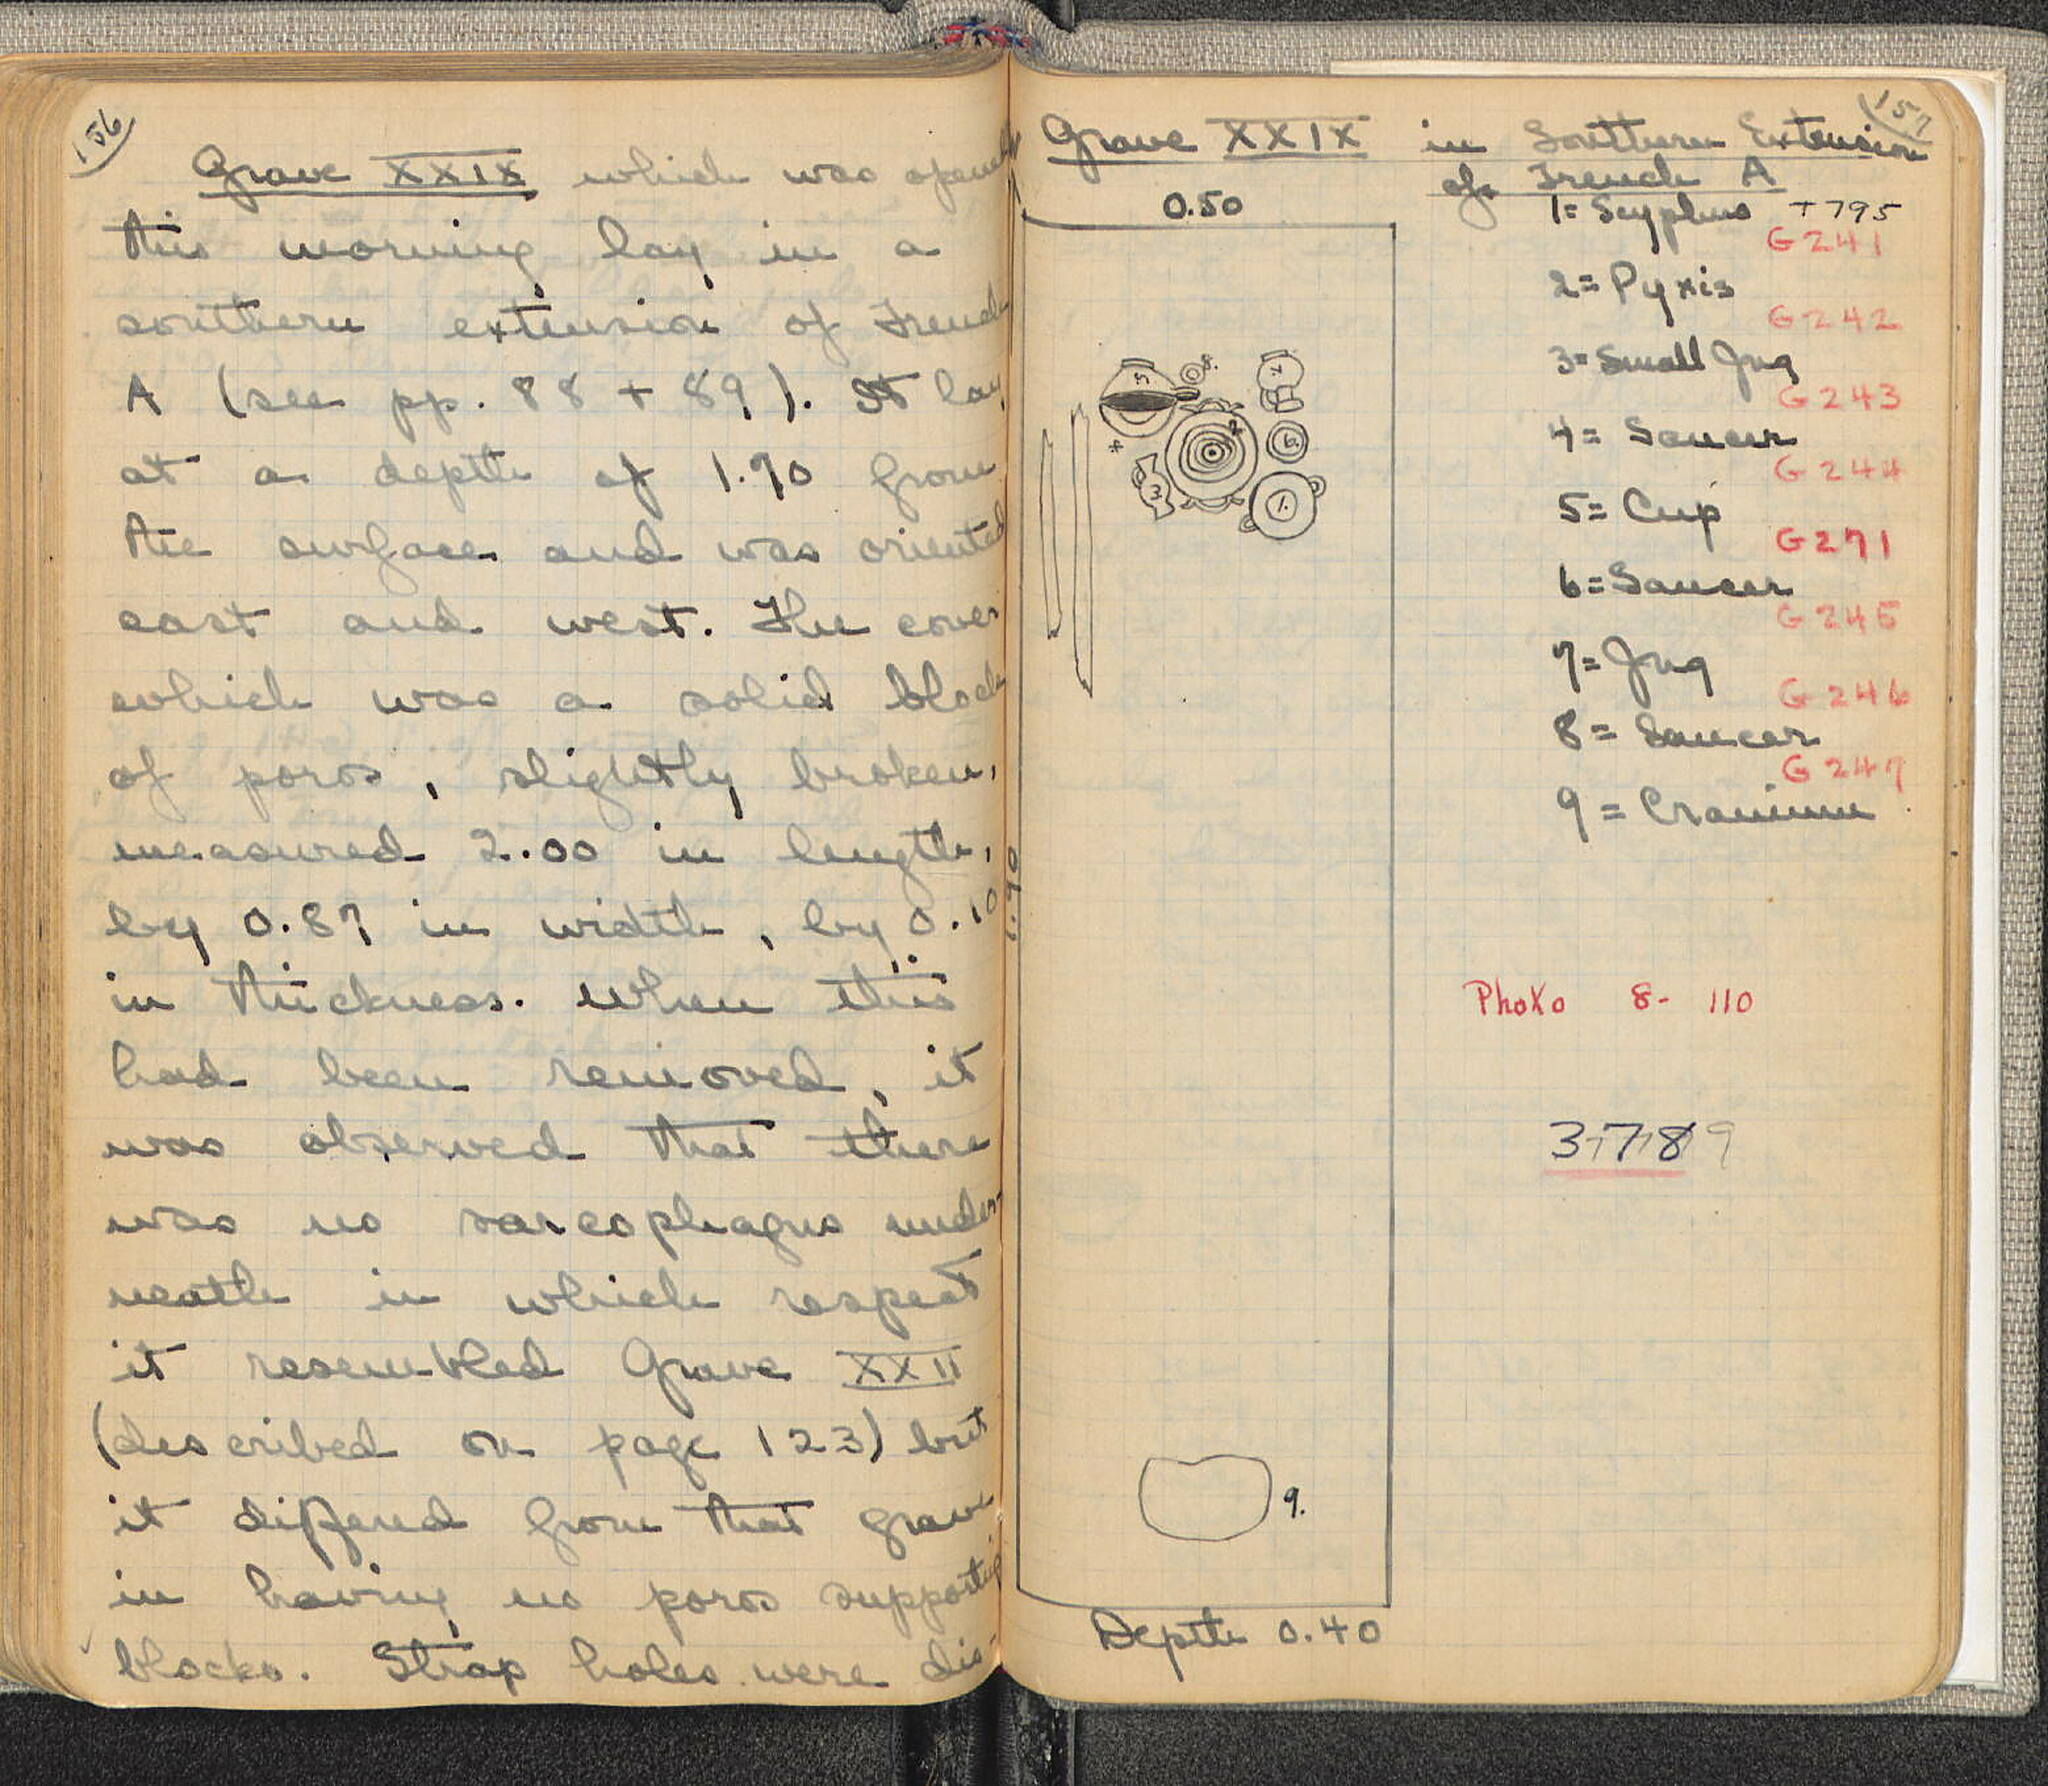 156
Grave XXIX which was opened
this morning lay in a
southern extension of Trench
A (see pp. 88 + 89). It lay
at a depth of 1.90 from
the surface and was oriented
east and west. The cover
which was a solid block
of poros, slightly broken,
measured 2.00 in length,
by 0.87 in width, by 0.10
in thickness. When this
had been removed, it
was observed that there
was no sarcophagus under-
neath in which respect
it resembled Grave XXII
(described on page 123) but
it differed from that grave
in having no poros supporting
blocks. Strap holes were dis-
157
Grave XXIX in Southern Extension
of Trench A
0.50
1.90
5.
8.
7.
4
2
6.
3.
1.
9.
Depth 0.40
1 = Scyphus T795
G241
2 = Pyxis
G242
3 = Small Jug
G243
4 = Saucer
G244
5 = Cup
G271
6 = Saucer
G245
7 = Jug
G246
8 = Saucer
G247
9 = Cranium
Photo 8- 110